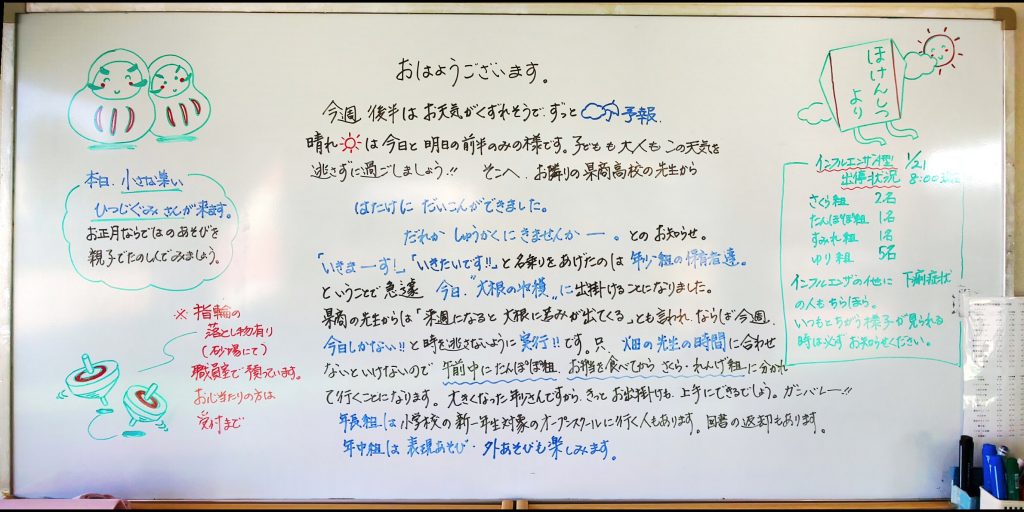 おはようございます。
今週 後半は お天気がくずれそうで ずっと 予報。
晴れ は 今日と 明日の 前半のみの 様です。子どもも 大人も この天気を
逃さずに過ごしましょう!! そこへ、お隣りの 県商高校の 先生から
はたけに だいこんができました。
だれか しゅうかくに きませんかー。 との お知らせ。
「いきまーす!」「いきたいです!!」と 名乗りを あげたのは 年少組の 保育者達。
ということで 急遽 今日、“大根の収穫”に 出掛けることに なりました。
県商の先生からは「来週になると 大根に 苦みが 出てくる」とも 言われ、ならば 今週、
今日しかない!! と 時を逃さないように 実行!! です。只、畑の先生の時間に 合わせ
ないといけないので 午前中に たんぽぽ組、お弁当を食べてから さくら・れんげ組 に 分かれ
て行くことに なります。大きくなった 年少さんですから、きっと お出掛けも、上手に できるでしょう。ガンバレー!!
年長組は 小学校の 新一年生対象の オープンスクールに 行く人も あります。図書の返却もあります。
年中組は 表現あそび・外あそびも 楽しみます。
本日、小さな集い
ひつじぐみ さんが 来ます。
お正月ならではのあそびを
親子でたのしんでみましょう。
※ 指輪の
落とし物有り
(砂場にて)
職員室で預っています。
お心当たりの方は
受付まで
ほけんしつ
より
インフルエンザA型 1/21
出停状況 8:00現在
さくら組 2名
たんぽぽ組 1名
すみれ組 1名
ゆり組 5名
インフルエンザの他に 下痢症状
の人もちらほら。
いつもとちがう様子が見られる
時は必ずお知らせください。